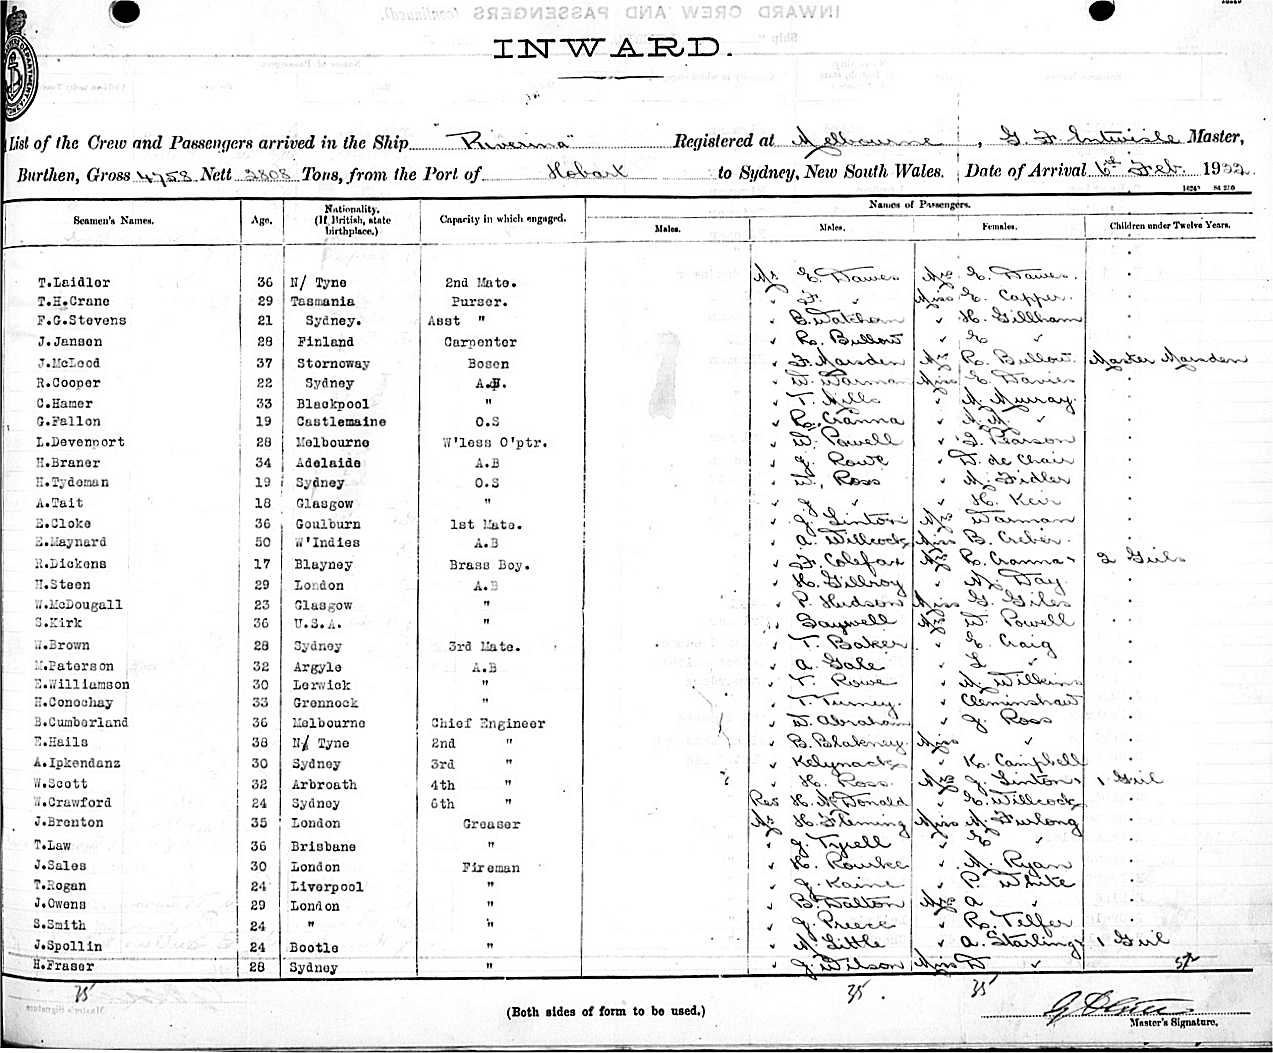 INWARD.
List of the Crew and Passengers arrived in the Ship "Riverina" Registered at Melbourne, G. F. Entwisle Master,
Burthen, Gross 4758 Nett 2808 Tons, from the Port of Hobart to Sydney, New South Wales. Date of Arrival 6th Feb. 1922
Names of Passengers.
Seamen's Names. Age. Nationality. (If British, state birthplace.) Capacity in which engaged. Males. Males. Females. Children under Twelve Years.
T.Laidler 36 N/ Tyne 2nd Mate. Mr E. Dawes Mrs E. Dawes.
T.H.Crane 29 Tasmania Purser. " F. " Miss E. Capper.
F.G.Stevens 21 Sydney. Asst " " B. Watchorn " H. Gillham
J.Jansen 28 Finland Carpenter " R. Bullow " E "
J.McLeod 37 Stornoway Bosen " F. Marsden Mrs R. Bullow. Master Marsden
R.Cooper 22 Sydney A.B. " W. Warman Miss E. Davies
C.Hamer 33 Blackpool " " T. Mills " M. Murray.
G.Fallon 19 Castlemaine O.S " R. Cranna " M. M. "
L.Devenport 28 Melbourne W'less O'ptr. " W. Powell " I. Pearson
H.Braner 34 Adelaide A.B " J. Rowe " D. de Chair
H.Tydeman 19 Sydney O.S " W. Ross " M. Fidler
A.Tait 18 Glasgow " " J " " H. Keir
E.Cloke 36 Goulburn 1st Mate. " J. Linton Mrs Warman
E.Maynard 50 W'Indies A.B " A. Willcocks Miss B. Creber.
R.Dickens 17 Blayney Brass Boy. " F. Colefax Mrs R. Cranna 2 Girls
H.Steen 29 London A.B " H. Gillroy " M. Day
W.McDougall 23 Glasgow " " P. Hudson Miss G. Giles
S.Kirk 36 U.S.A. " " Saywell Mrs W. Powell
W.Brown 28 Sydney 3rd Mate. " T. Baker " E. Craig
M.Paterson 32 Argyle A.B " A. Gale " L "
E.Williamson 30 Lerwick " " T. Rowe " M. Wilkins
H.Conochay 33 Grennock " " T. Turney. " Cleminshaw
B.Cumberland 36 Melbourne Chief Engineer " W. Abraham " J. Ross
E.Hails 38 N/ Tyne 2nd " " B. Blakney. Miss "
A.Ipkendanz 30 Sydney 3rd " " Kelynack " K. Campbell
W.Scott 32 Arbroath 4th " " H. Ross. Mrs J. Linton 1 Girl
W.Crawford 24 Sydney 6th " Rev H. McDonald " E. Willcocks
J.Brenton 35 London Greaser Mr H. Fleming Miss M. Furlong
T.Law 36 Brisbane " " J. Tyrell " E "
J.Sales 30 London Fireman " H. Rourke " M. Ryan
T.Rogan 24 Liverpool " " J. Kaine " P. White
J.Owens 29 London " " B. Dalton Mrs A "
S.Smith 24 " " " J. Preece " R. Telfer
J.Spollin 24 Bootle " " M. Little " A. Starling 1 Girl
H.Fraser 28 Sydney " " J. Wilson Miss D "
35 35 35
(Both sides of form to be used.)
Master's Signature.